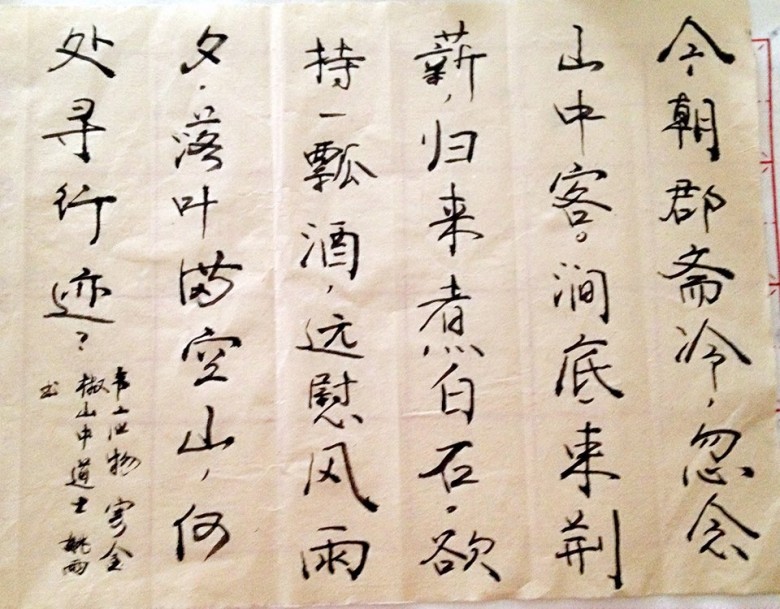 今朝郡斋冷,忽念
山中客。涧底束荆
薪,归来煮白石。欲
持一瓢酒,远慰风雨
夕。落叶满空山,何
处寻行迹?
韦应物 寄全
椒山中道士